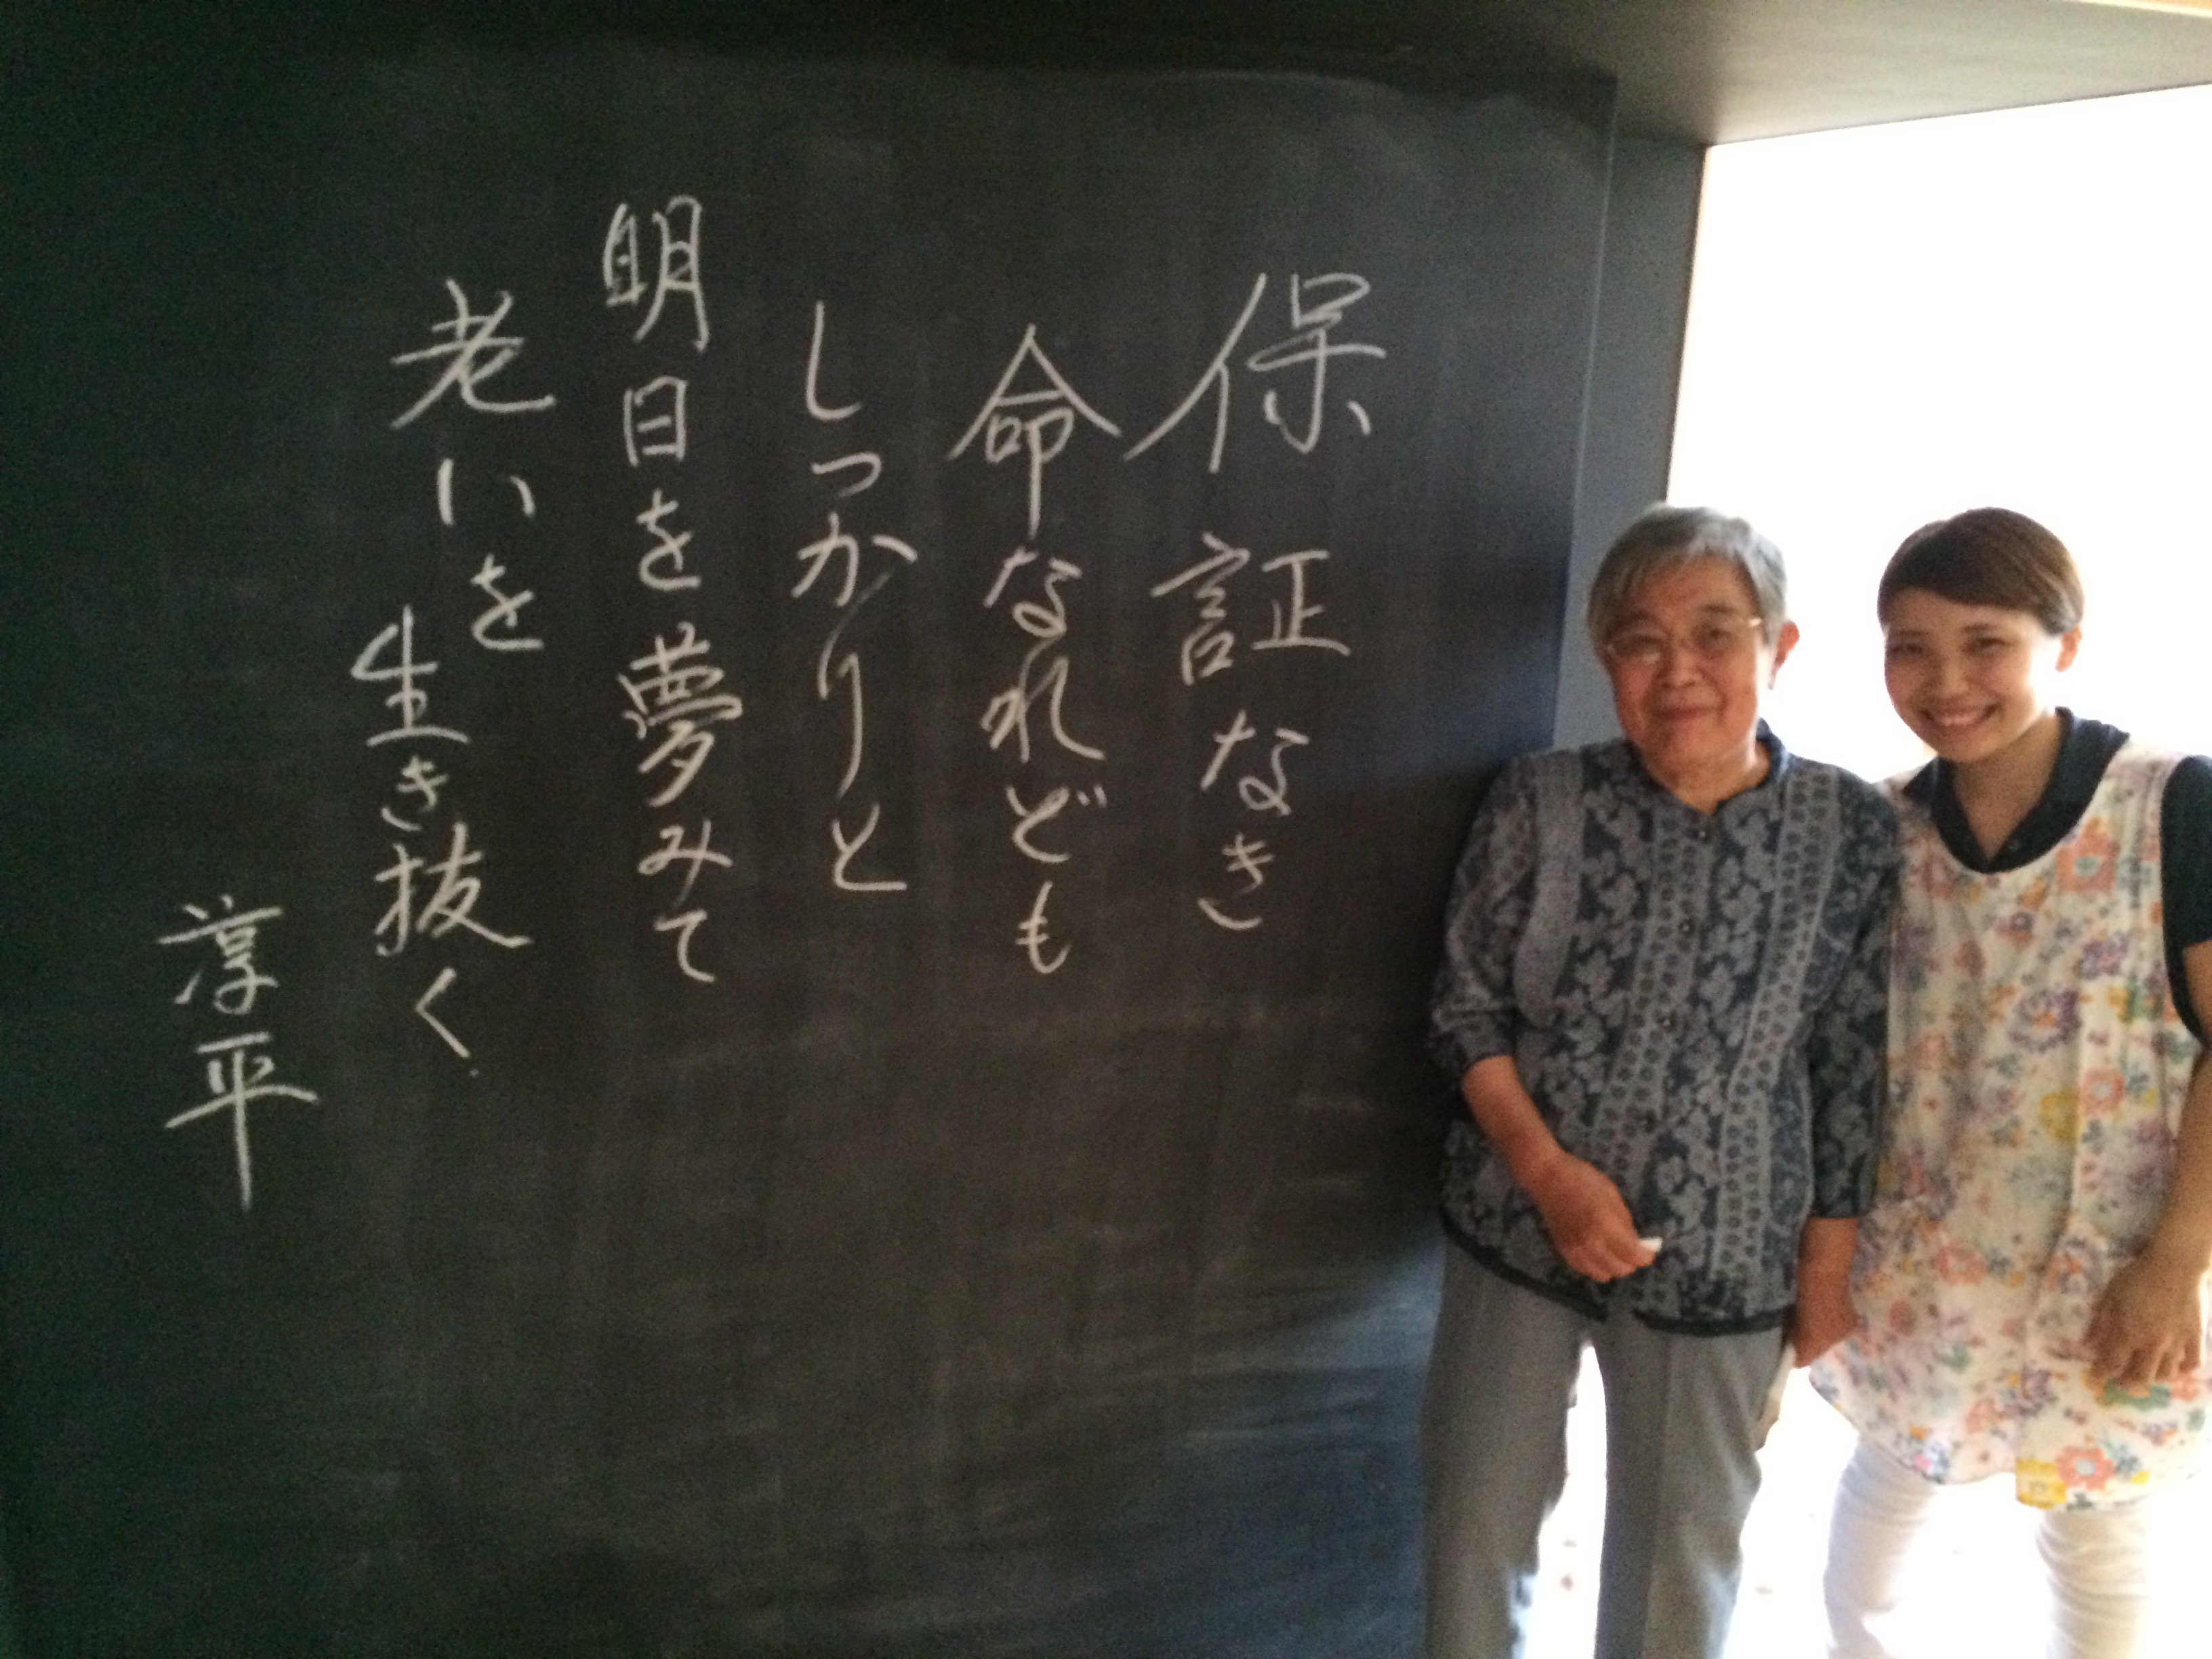 保証なき
命なれども
しっかりと
明日を夢みて
老いを
生き抜く
淳平